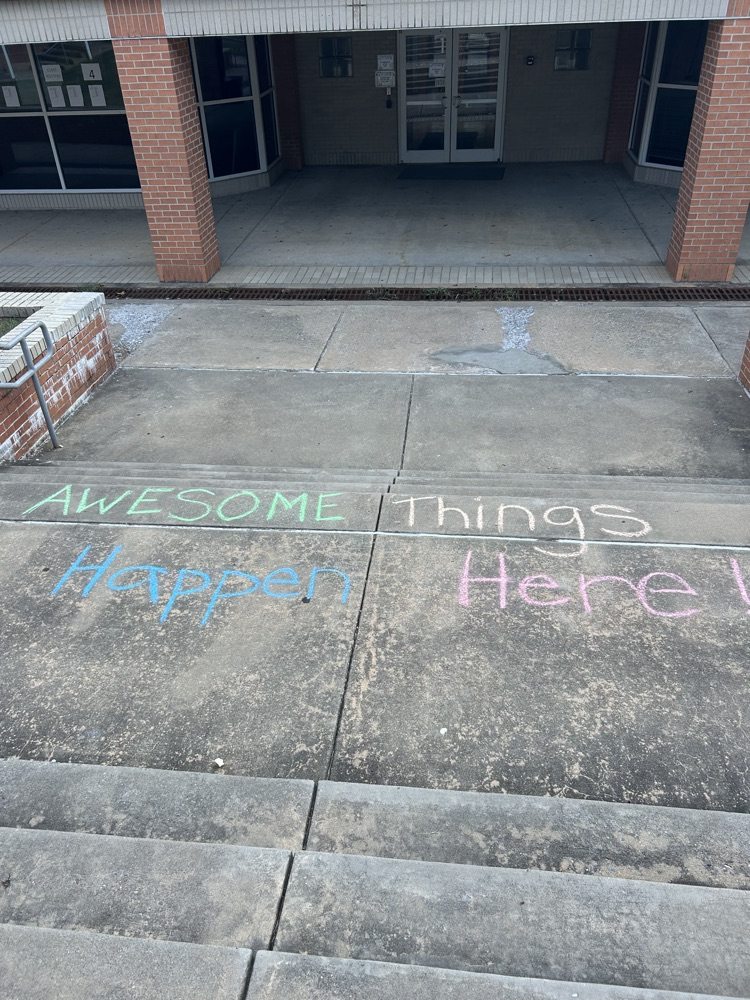 4
AWESOME Things
Happen Here!